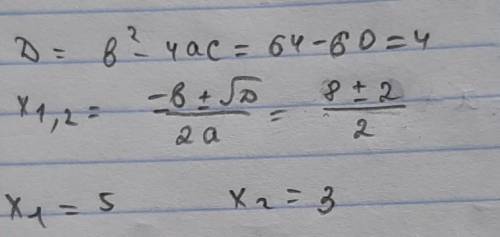 D = b² - 4ac = 64 - 60 = 4
x₁,₂ = (-b ± √D)/(2a) = (8 ± 2)/2
x₁ = 5 x₂ = 3